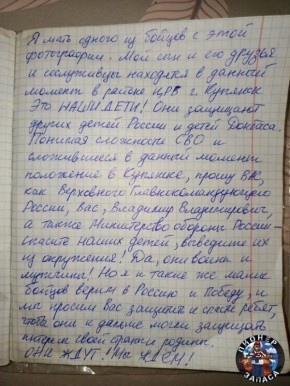 Я мать одного из бойцов с этой
фотографии. Мой сын и его друзья
и сослуживцы находятся в данный
момент в районе ЦРБ г. Купянск
Это НАШИ ДЕТИ! Они защищают
других детей России и детей Донбасса.
Понимая сложности СВО и
сложившееся в данный момент
положение в Купянске, прошу ВАС,
как Верховного Главнокомандующего
России, Вас, Владимир Владимирович,
а также Министерство обороны России -
спасите наших детей, выведите их
из окружения! Да, они воины и
мужчины! Но я и такие же мамы
бойцов верим в Россию и Победу, и
мы просим Вас защитить и спасти ребят,
чтоб они и дальше могли защищать
интересы своей страны родины.
ОНИ ЖДУТ! МЫ ЖДЕМ!
ПИОНЕР
ЗАПАСА